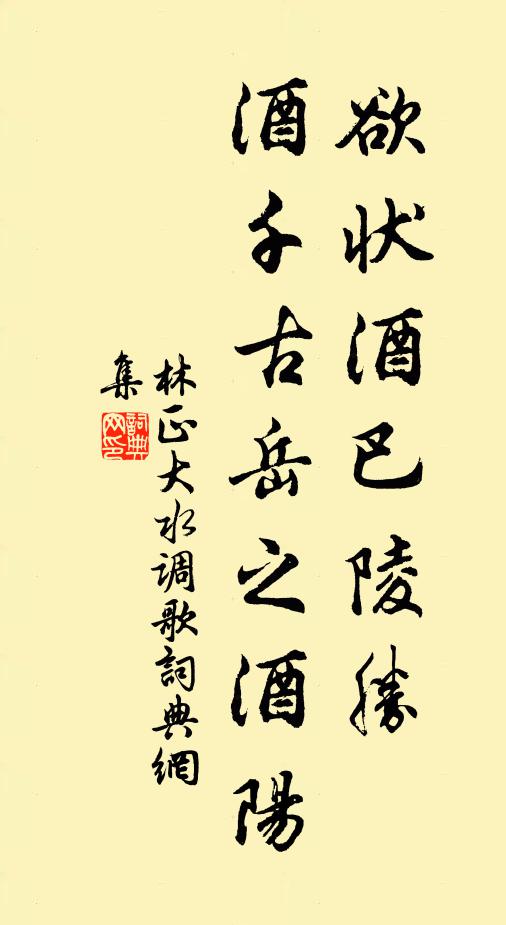 欲状酒巴陵勝
酒千古岳之酒陽
林正大水调歌詞典網
集
詞典网印